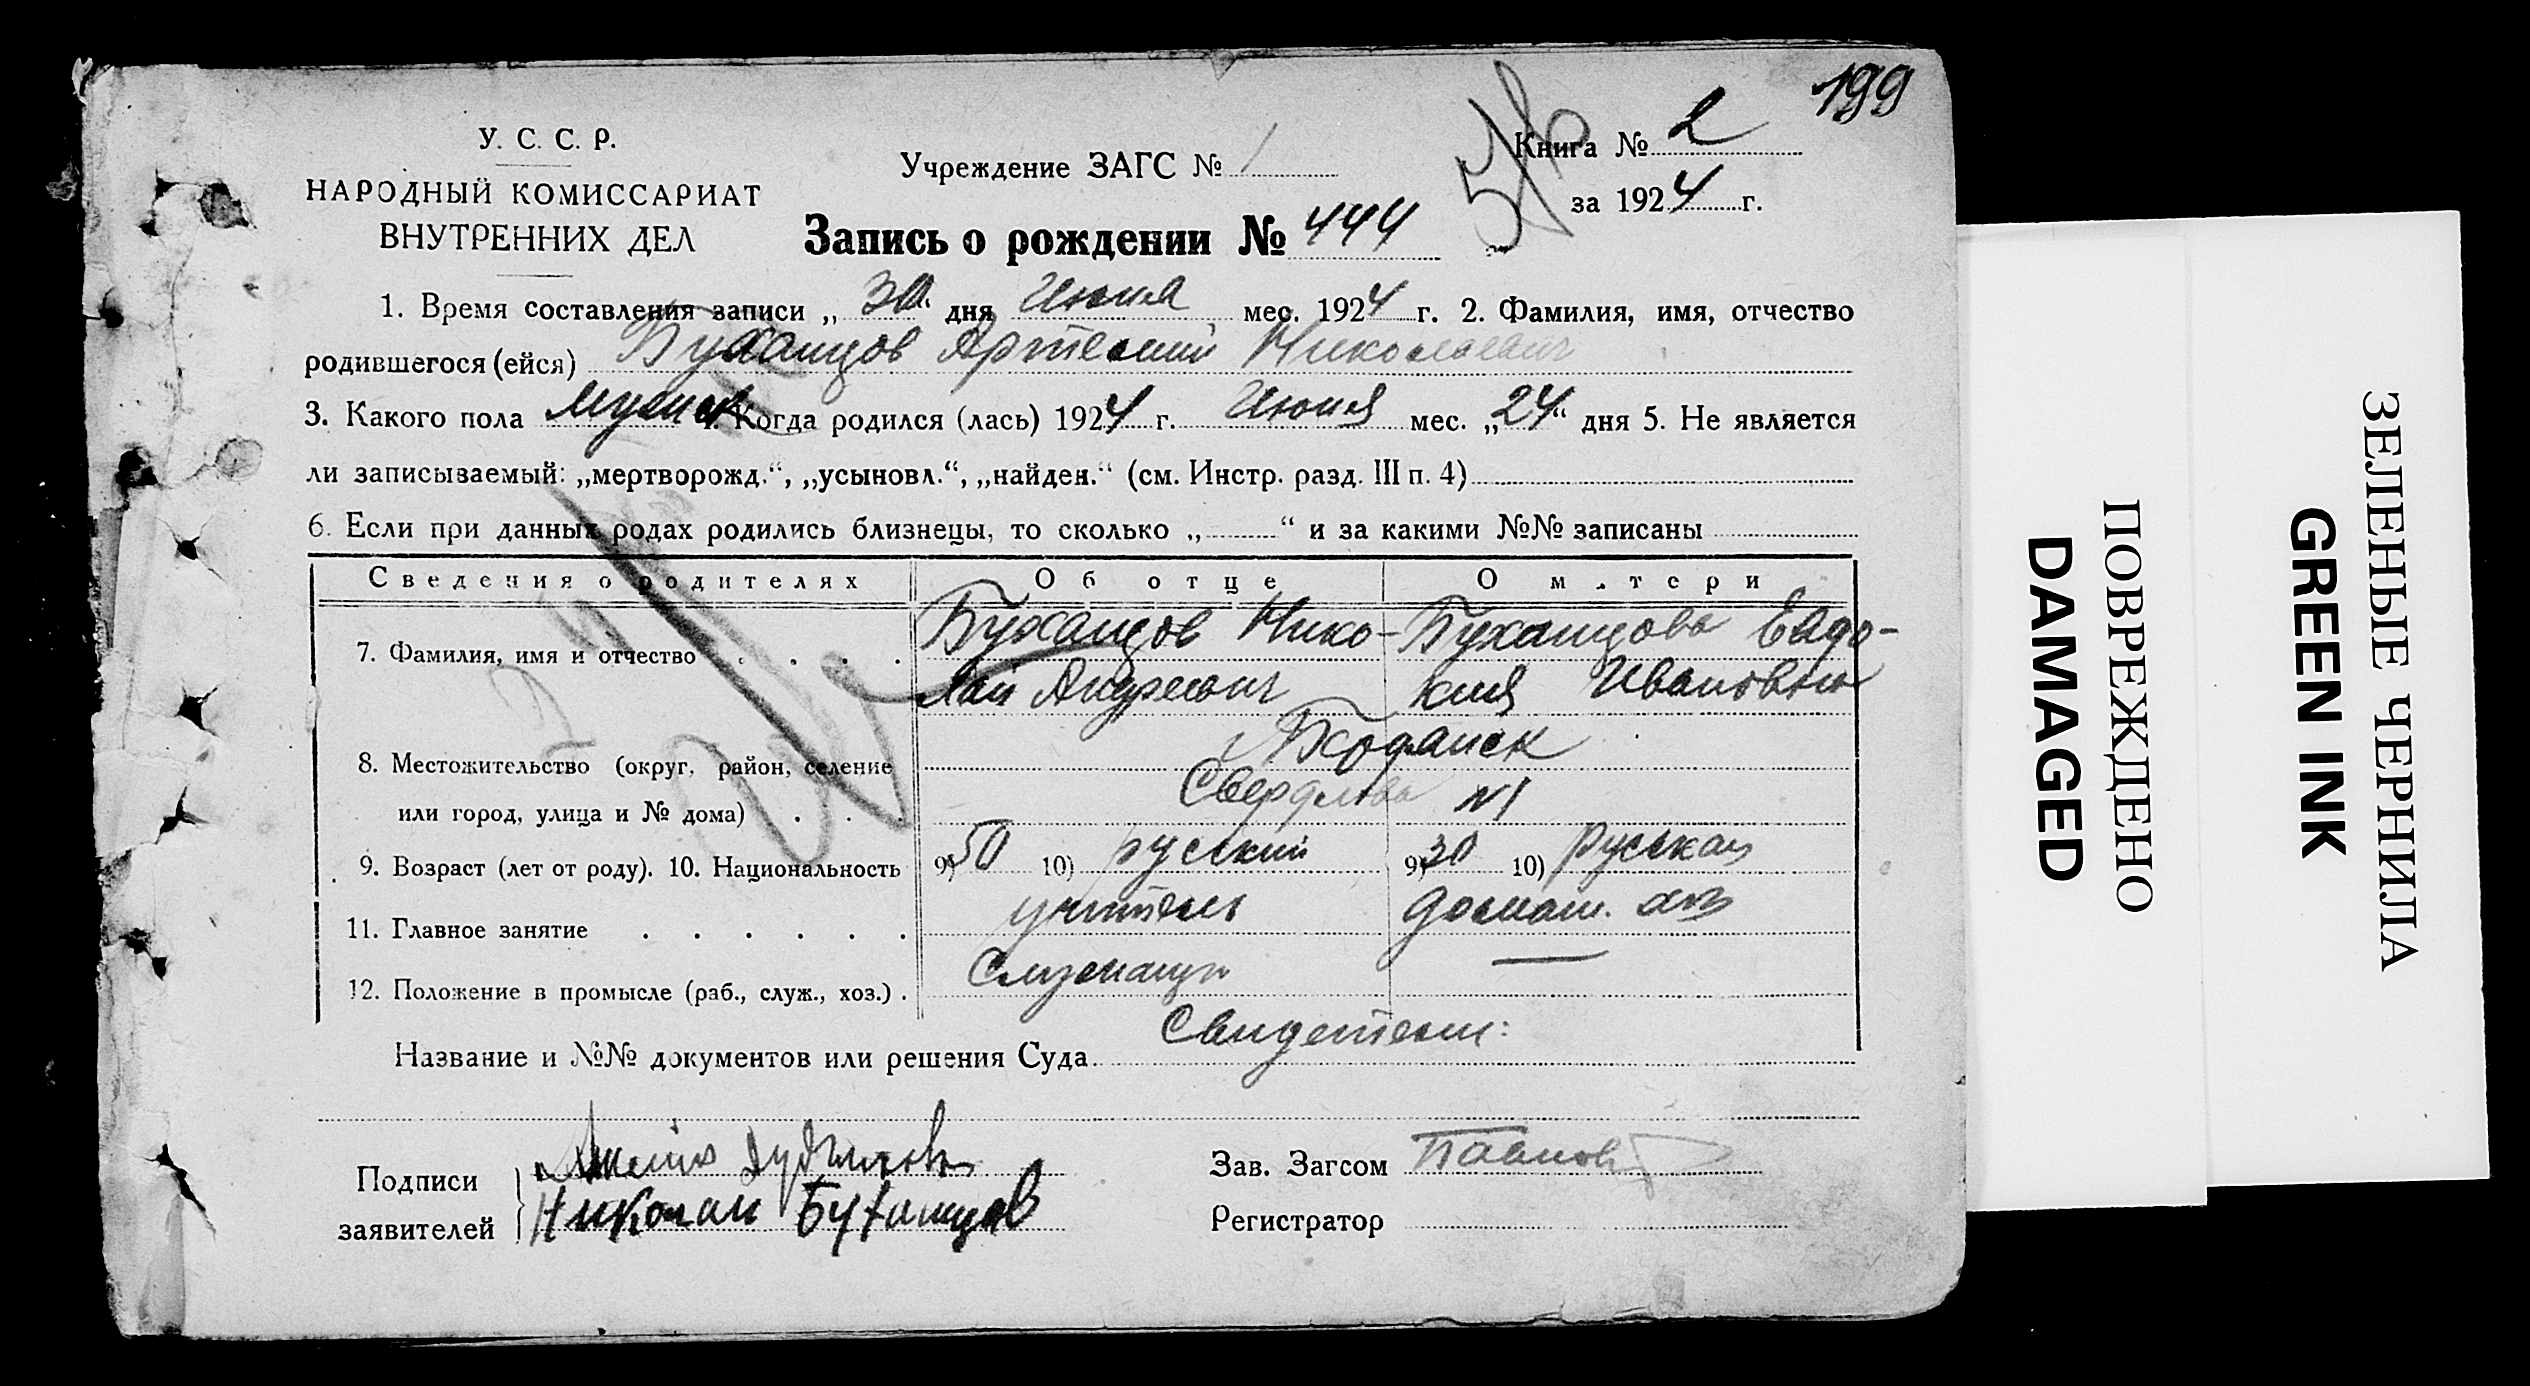 199
У. С. С. Р.
НАРОДНЫЙ КОМИССАРИАТ
ВНУТРЕННИХ ДЕЛ
Учреждение ЗАГС № 1
Книга № 2
за 1924 г.
Запись о рождении № 444
1. Время составления записи „30“ дня Июня мес. 1924 г. 2. Фамилия, имя, отчество
родившегося (ейся) Буханцов Артемий Николаевич
3. Какого пола мужск 4. Когда родился (лась) 1924 г. Июня мес. „24“ дня 5. Не является
ли записываемый: „мертворожд.“, „усыновл.“, „найден.“ (см. Инстр. разд. III п. 4)
6. Если при данных родах родились близнецы, то сколько „ “ и за какими №№ записаны
Сведения о родителях Об отце О матери
7. Фамилия, имя и отчество Буханцов Нико- Буханцова Евдо-
лай Андреевич кия Ивановна
8. Местожительство (округ, район, селение
или город, улица и № дома) Свердлова №1
9. Возраст (лет от роду). 10. Национальность 9) 50 10) русский 9) 30 10) руськая
11. Главное занятие учитель домаш. хоз
12. Положение в промысле (раб., служ., хоз.) Служащи —
Название и №№ документов или решения Суда Свидетели:
Подписи
заявителей
Николай Буханцов
Зав. Загсом
Регистратор
ПОВРЕЖДЕНО
DAMAGED
ЗЕЛЕНЫЕ ЧЕРНИЛА
GREEN INK